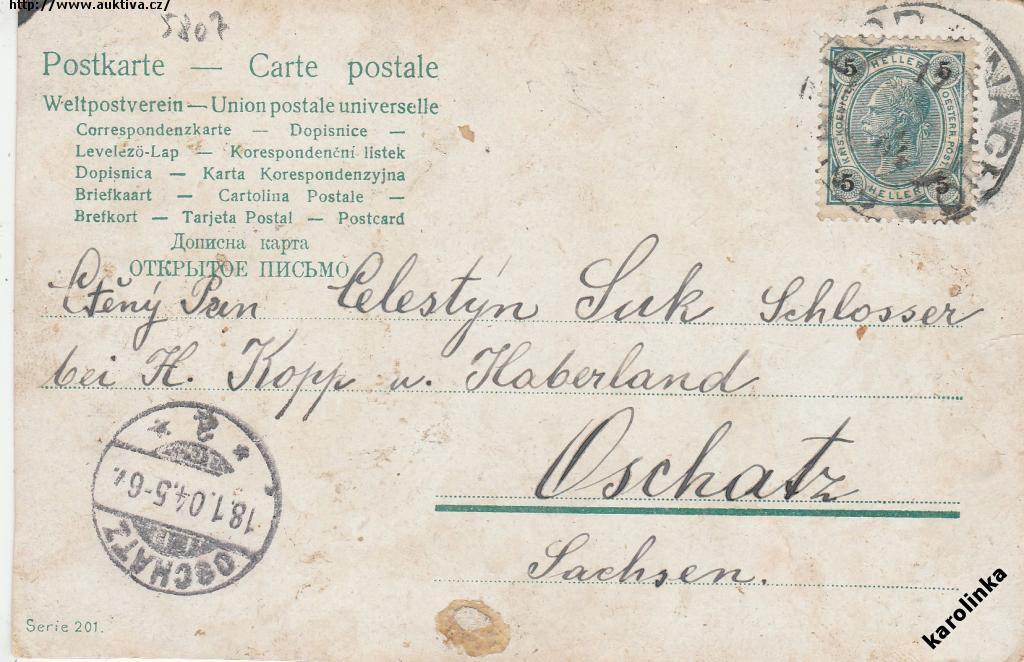 http://www.auktiva.cz/
5807
Postkarte — Carte postale
Weltpostverein — Union postale universelle
Correspondenzkarte — Dopisnice —
Levelező-Lap — Korespondenční lístek
Dopisnica — Karta Korespondenzyjna
Briefkaart — Cartolina Postale —
Brefkort — Tarjeta Postal — Postcard
Дописна карта
ОТКРЫТОЕ ПИСЬМО
5 HELLER 5
5 HELLER 5
NÁCH
Ctěný Pan Celestýn Suk Schlosser
bei H. Kopp u. Haberland
Oschatz
Sachsen.
18.1.04.5-6
OSCHATZ
Serie 201.
karolinka